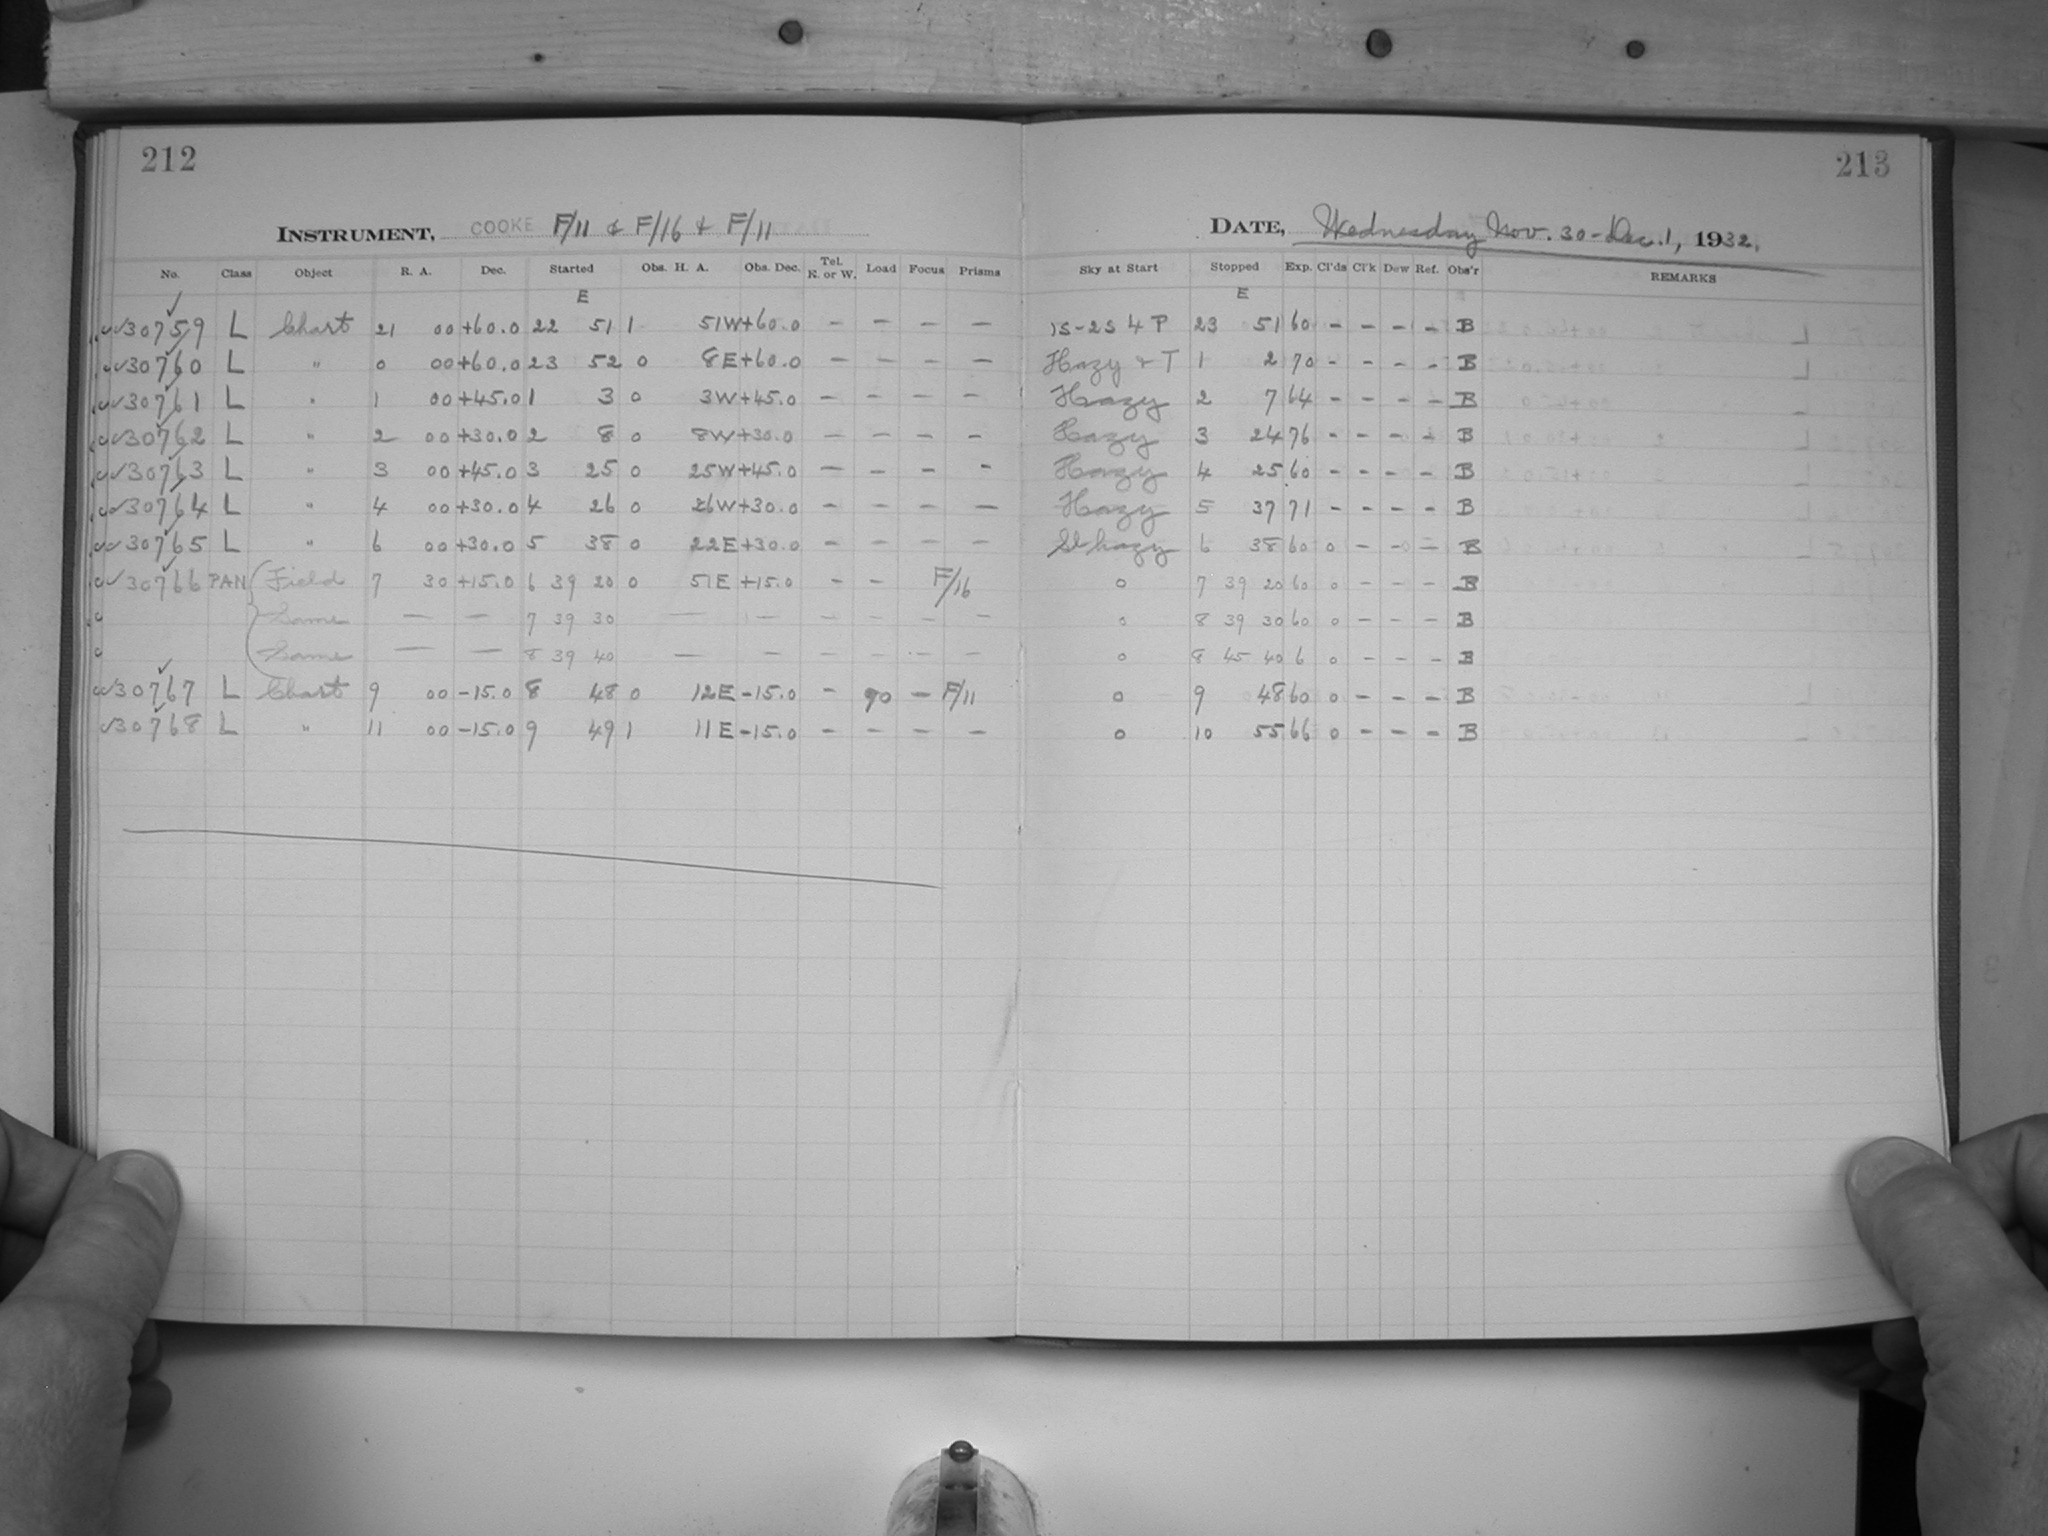 212
INSTRUMENT, COOKE F/11 & F/16 & F/11
No. Class Object R. A. Dec. Started Obs. H. A. Obs. Dec. Tel. E. or W. Load Focus Prisms
E
30759 L Chart 21 00 +60.0 22 51 1 51W +60.0 - - - -
30760 L " 0 00 +60.0 23 52 0 8E +60.0 - - - -
30761 L " 1 00 +45.0 1 3 0 3W +45.0 - - - -
30762 L " 2 00 +30.0 2 8 0 8W +30.0 - - - -
30763 L " 3 00 +45.0 3 25 0 25W +45.0 - - - -
30764 L " 4 00 +30.0 4 26 0 26W +30.0 - - - -
30765 L " 6 00 +30.0 5 38 0 22E +30.0 - - - -
30766 PAN Field 7 30 +15.0 6 39 20 0 51E +15.0 - - F/16
Same - - 7 39 30 - - - - - -
Same - - 8 39 40 - - - - - -
30767 L Chart 9 00 -15.0 8 48 0 12E -15.0 - 90 - F/11
30768 L " 11 00 -15.0 9 49 1 11E -15.0 - - - -
213
DATE, Wednesday Nov. 30 - Dec. 1, 1932.
Sky at Start Stopped Exp. Cl'ds Cl'k Dew Ref. Obs'r REMARKS
E
1S-2S 4 P 23 51 60 - - - - B
Hazy & T 1 2 70 - - - - B
Hazy 2 7 64 - - - - B
Hazy 3 24 76 - - - - B
Hazy 4 25 60 - - - - B
Hazy 5 37 71 - - - - B
Sl hazy 6 38 60 0 - - - B
0 7 39 20 60 0 - - - B
0 8 39 30 60 0 - - - B
0 8 45 40 6 0 - - - B
0 9 48 60 0 - - - B
0 10 55 66 0 - - - B